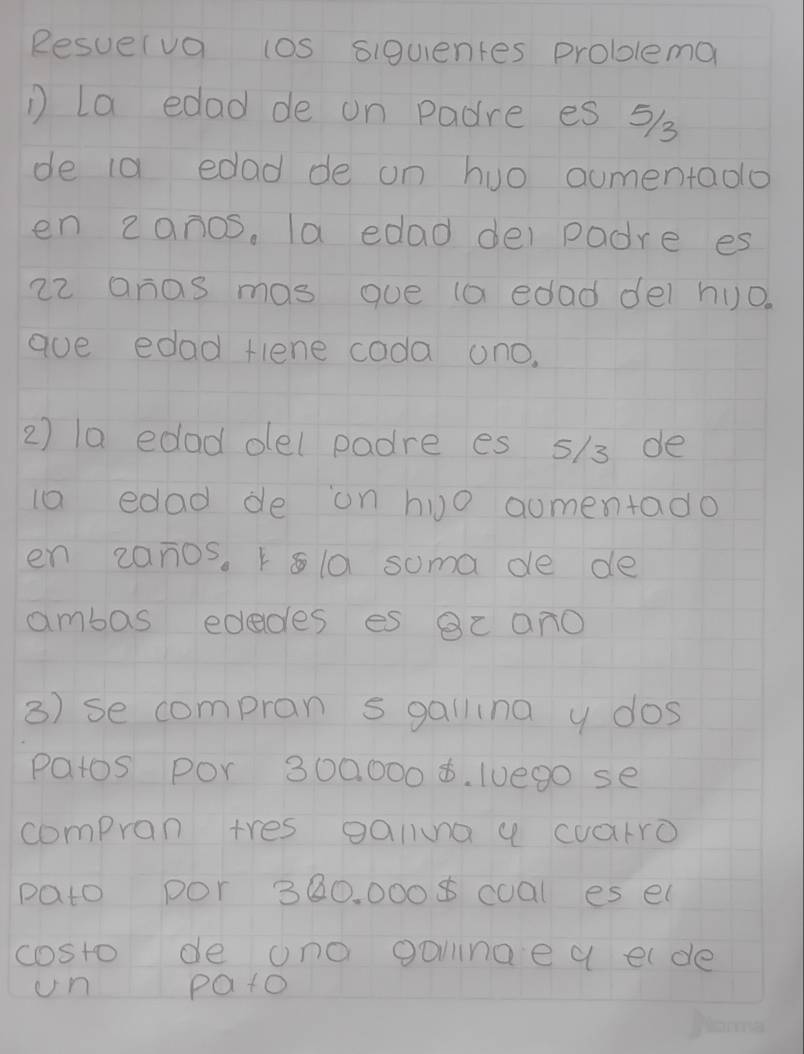 Resuelva los siguientes problema
1) La edad de un Padre es 5/3
de la edad de un hijo aumentado
en 2 años. la edad del padre es
22 añas mas que la edad del hijo.
que edad tiene cada uno.
2) la edad del padre es 5/3 de
la edad de un hijo aumentado
en 2años. la suma de de
ambas edades es 82 año
3) se compran 5 gallina y dos
patos por 300.000 $. luego se
compran tres gallina y cuatro
pato por 380.000 $ cual es el
costo de una gallina e y el de
un pato
Norma